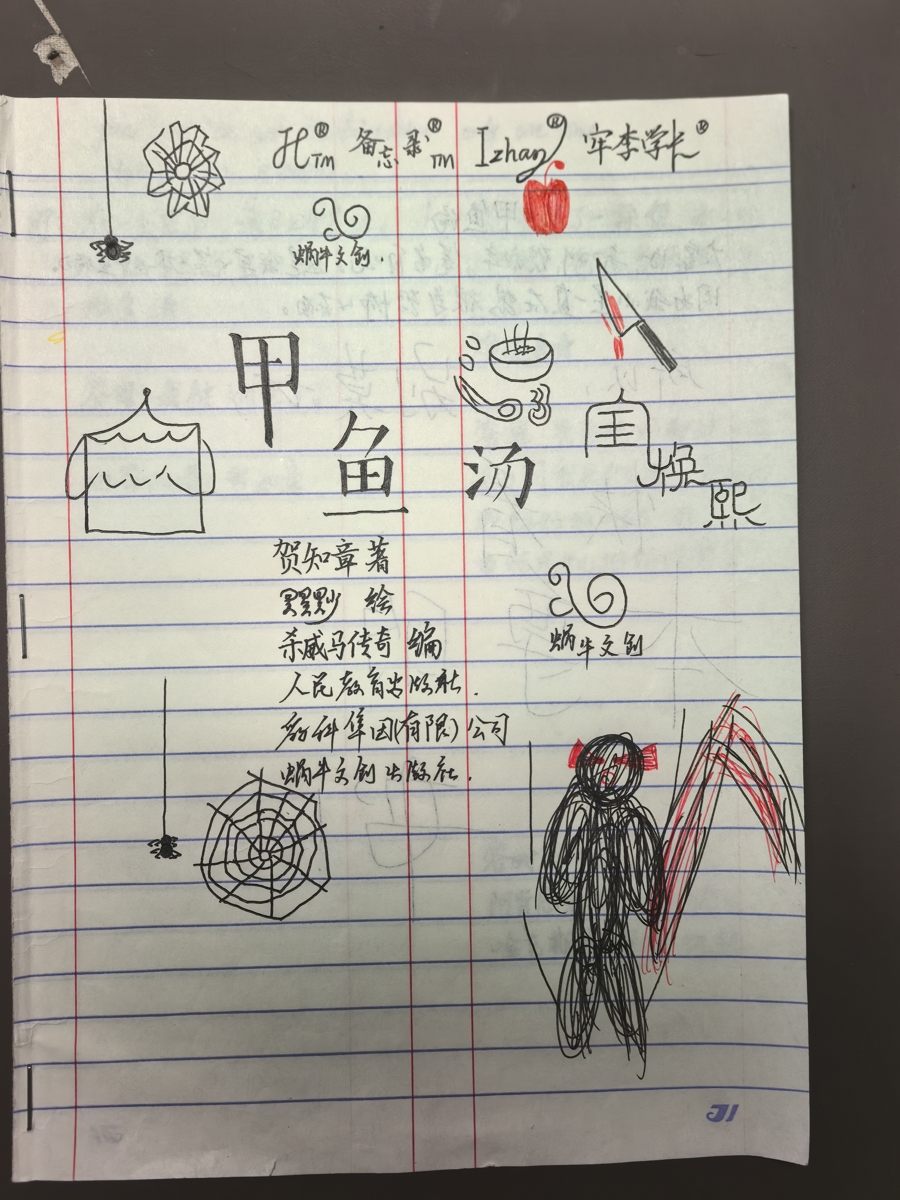 TM ® 备忘录® TM Izhang® 牢李学长®
蜗牛文创.
甲
鱼
汤
换
熙
贺知章 著
默默妙 绘
杀威马传奇 编
蜗牛文创
人民教育出版社.
教科集团(有限)公司
蜗牛文创出版社.
J1